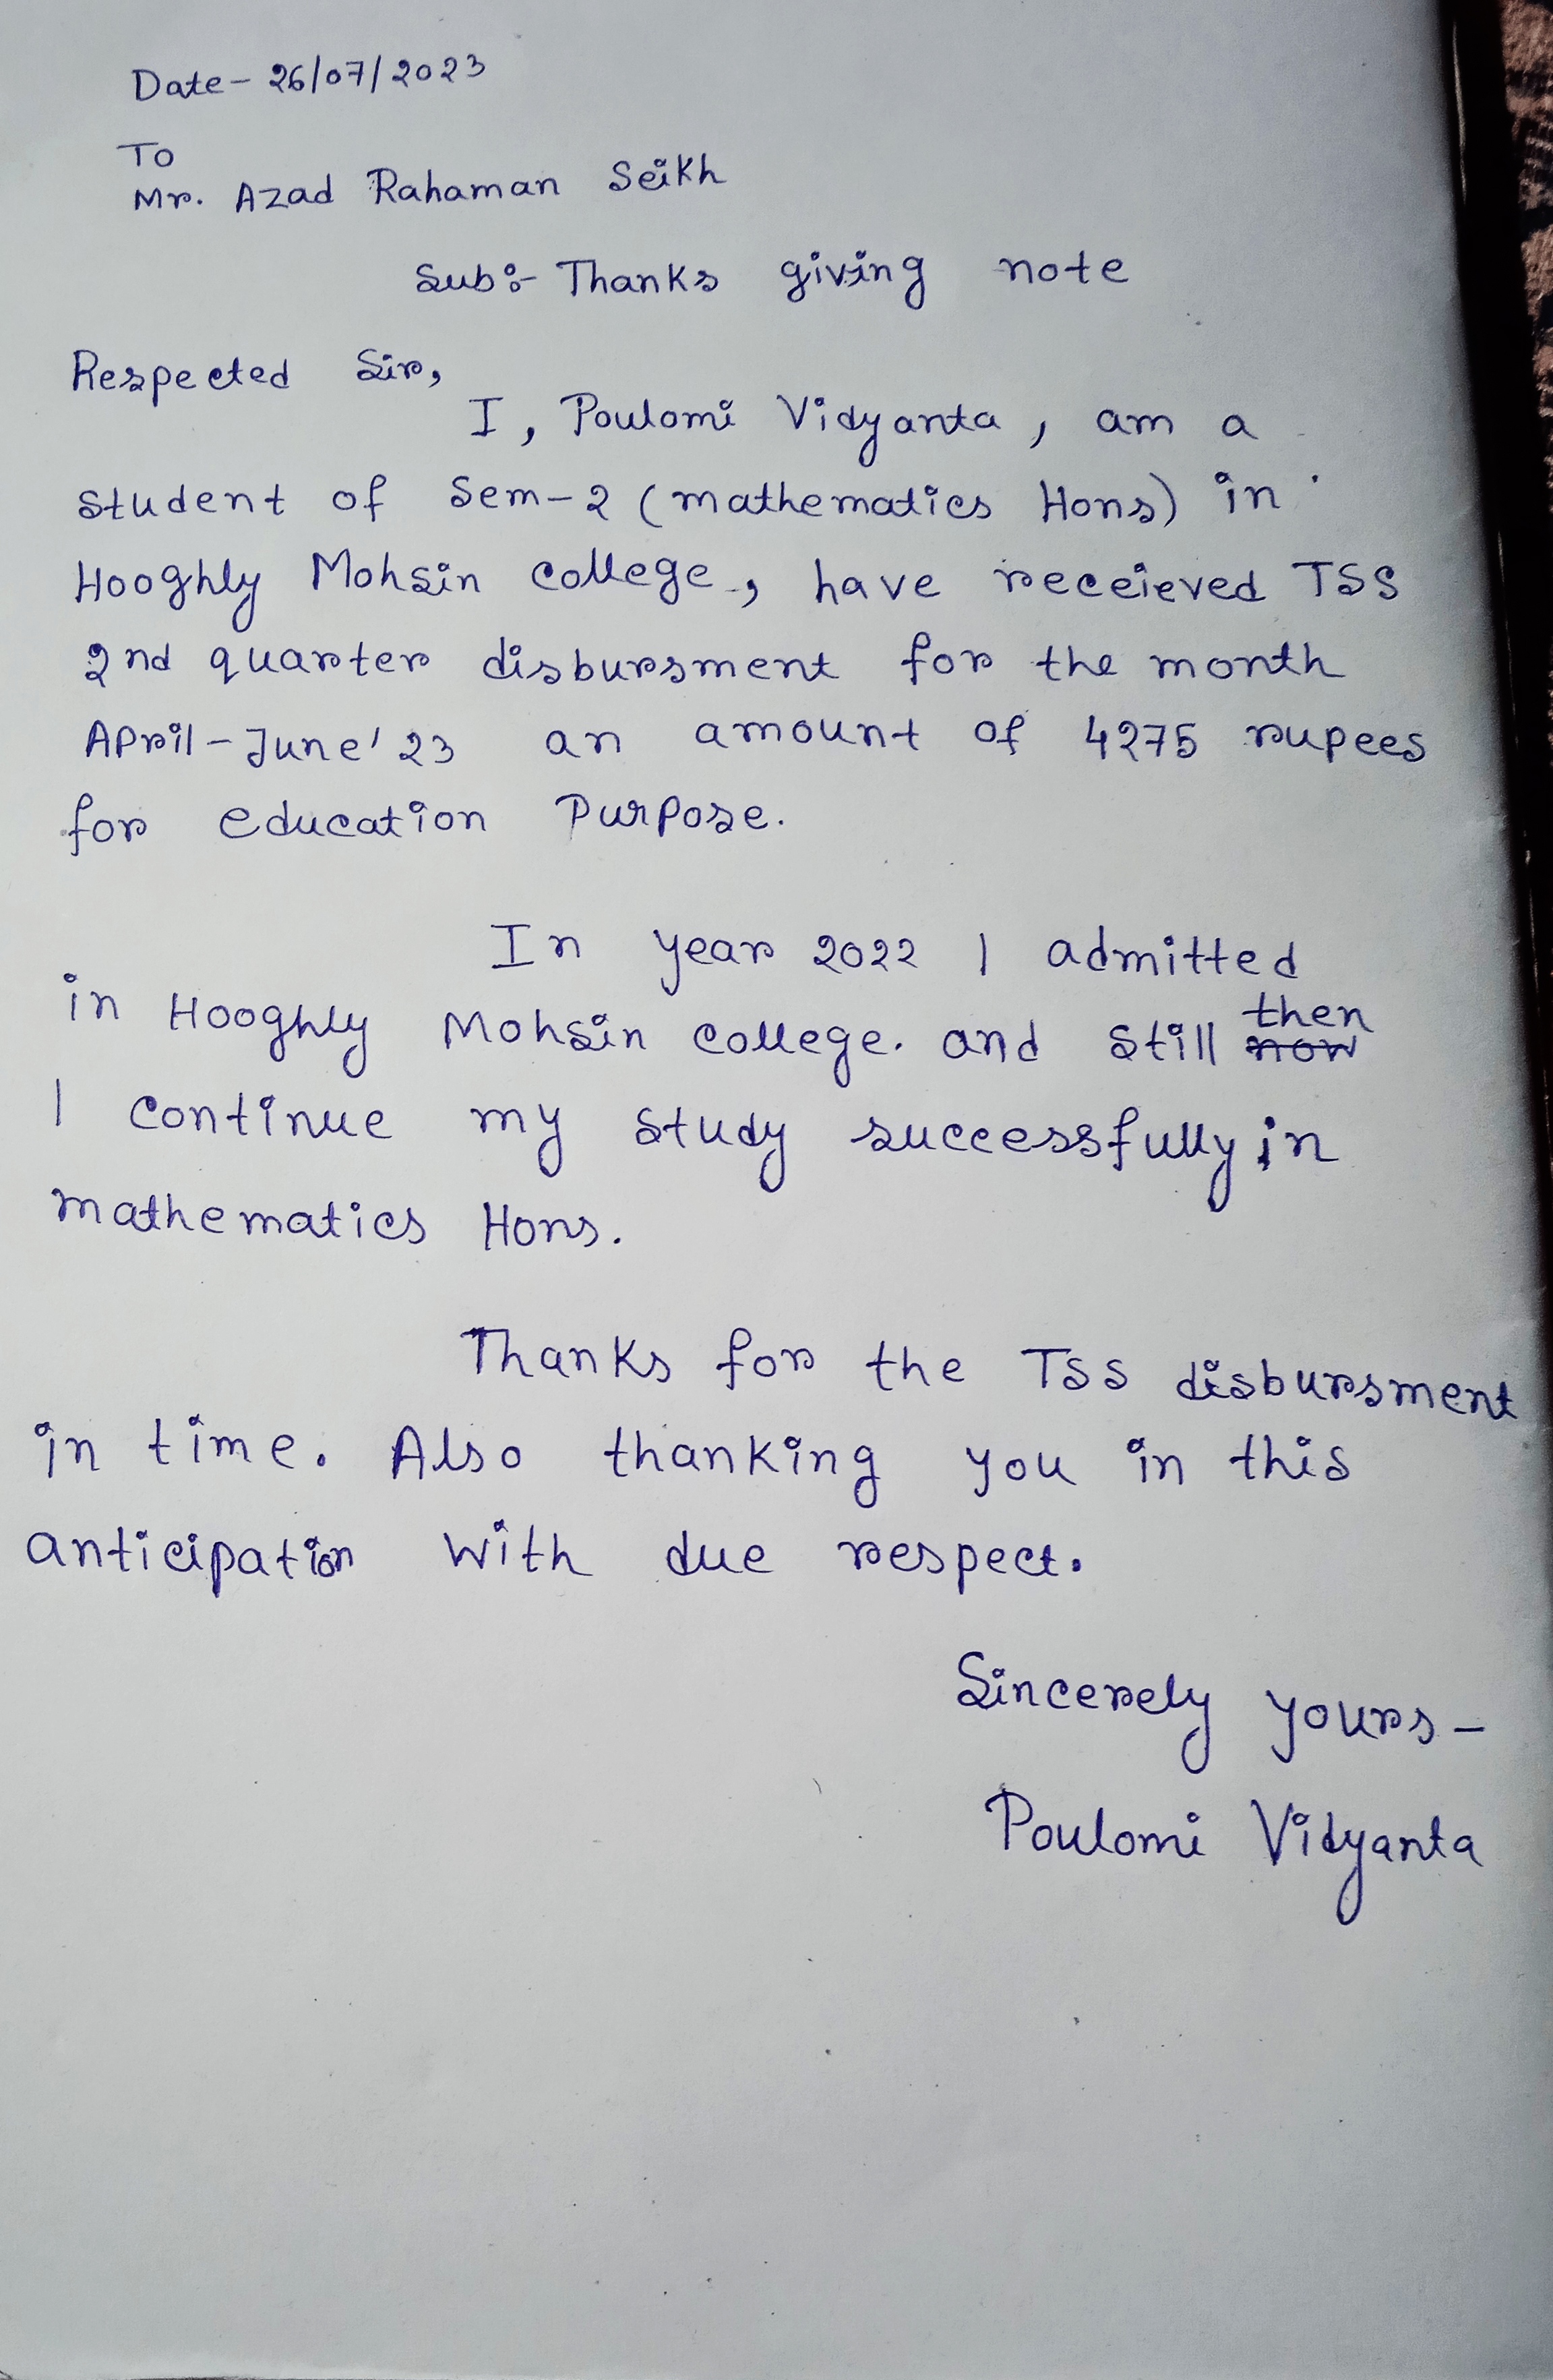 Date - 26/07/2023
To
Mr. Azad Rahaman Seikh
Sub:- Thanks giving note
Respected Sir,
I, Poulomi Vidyanta, am a
student of Sem-2 (mathematics Hons) in
Hooghly Mohsin college, have receieved TSS
2nd quarter disbursment for the month
April-June'23 an amount of 4275 rupees
for education Purpose.
In year 2022 I admitted
in Hooghly Mohsin college. and still then
now
I continue my study successfully in
mathematics Hons.
Thanks for the TSS disbursment
in time. Also thanking you in this
anticipation with due respect.
Sincerely yours -
Poulomi Vidyanta